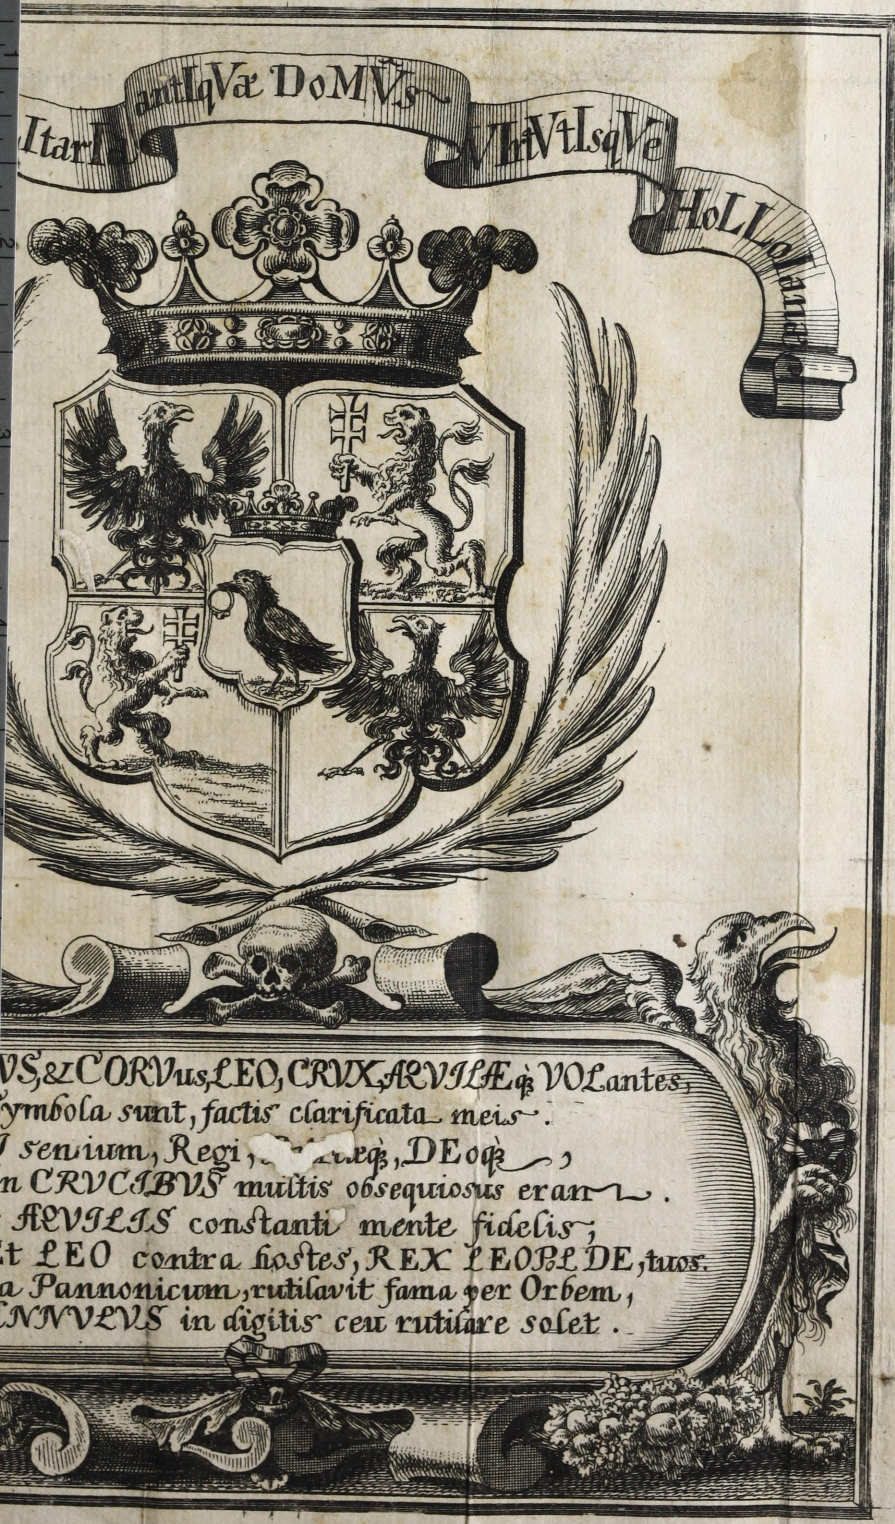 antIqVæ DoMVs VtIsqVe HoLLoIanæ
VS, & CORVus, LEO, CRVX, ÆQVILÆq; VOLantes,
ymbola sunt, factis clarificata meis.
senium, Regi, DEOq;,
n CRVCIBVS multis obsequiosus eram.
ÆQVILIS constanti mente fidelis;
Et LEO contra hostes, REX LEOPLDE, tuos.
a Pannonicum, rutilavit fama per Orbem,
NNVLVS in digitis ceu rutilare solet.